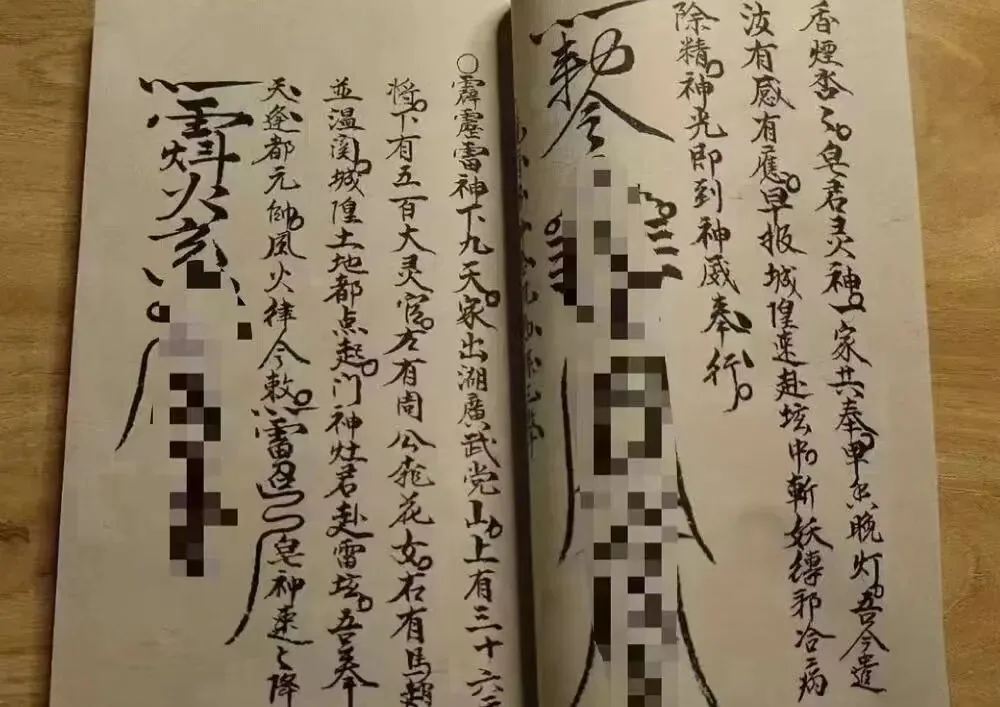 香煙杳之。皂君灵神。一家共奉。晚灯。吾今遣
汝有感有應。早报城隍速赴坛中。斬妖縛邪冶病
除精。神光即到神威奉行。
勅令
○霹靂雷神下九天。家出湖廣武党山。上有三十六
将。下有五百大灵官。左有周公桃花女。右有馬趙
並温関。城隍土地都点起。门神灶君赴雷坛。吾奉
天逢都元帥。風火律令敕。雷皂神速之降